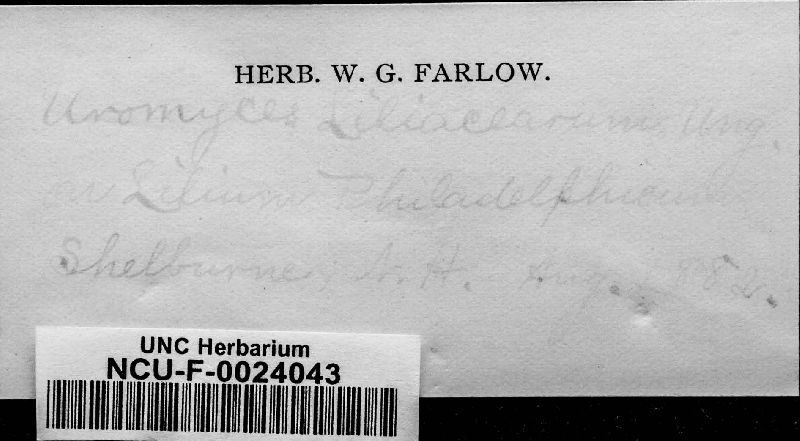 HERB. W. G. FARLOW.
Uromyces Liliacearum, Ung.
on Lilium Philadelphicum
Shelburne, N. H. Aug. 1882.
UNC Herbarium
NCU-F-0024043